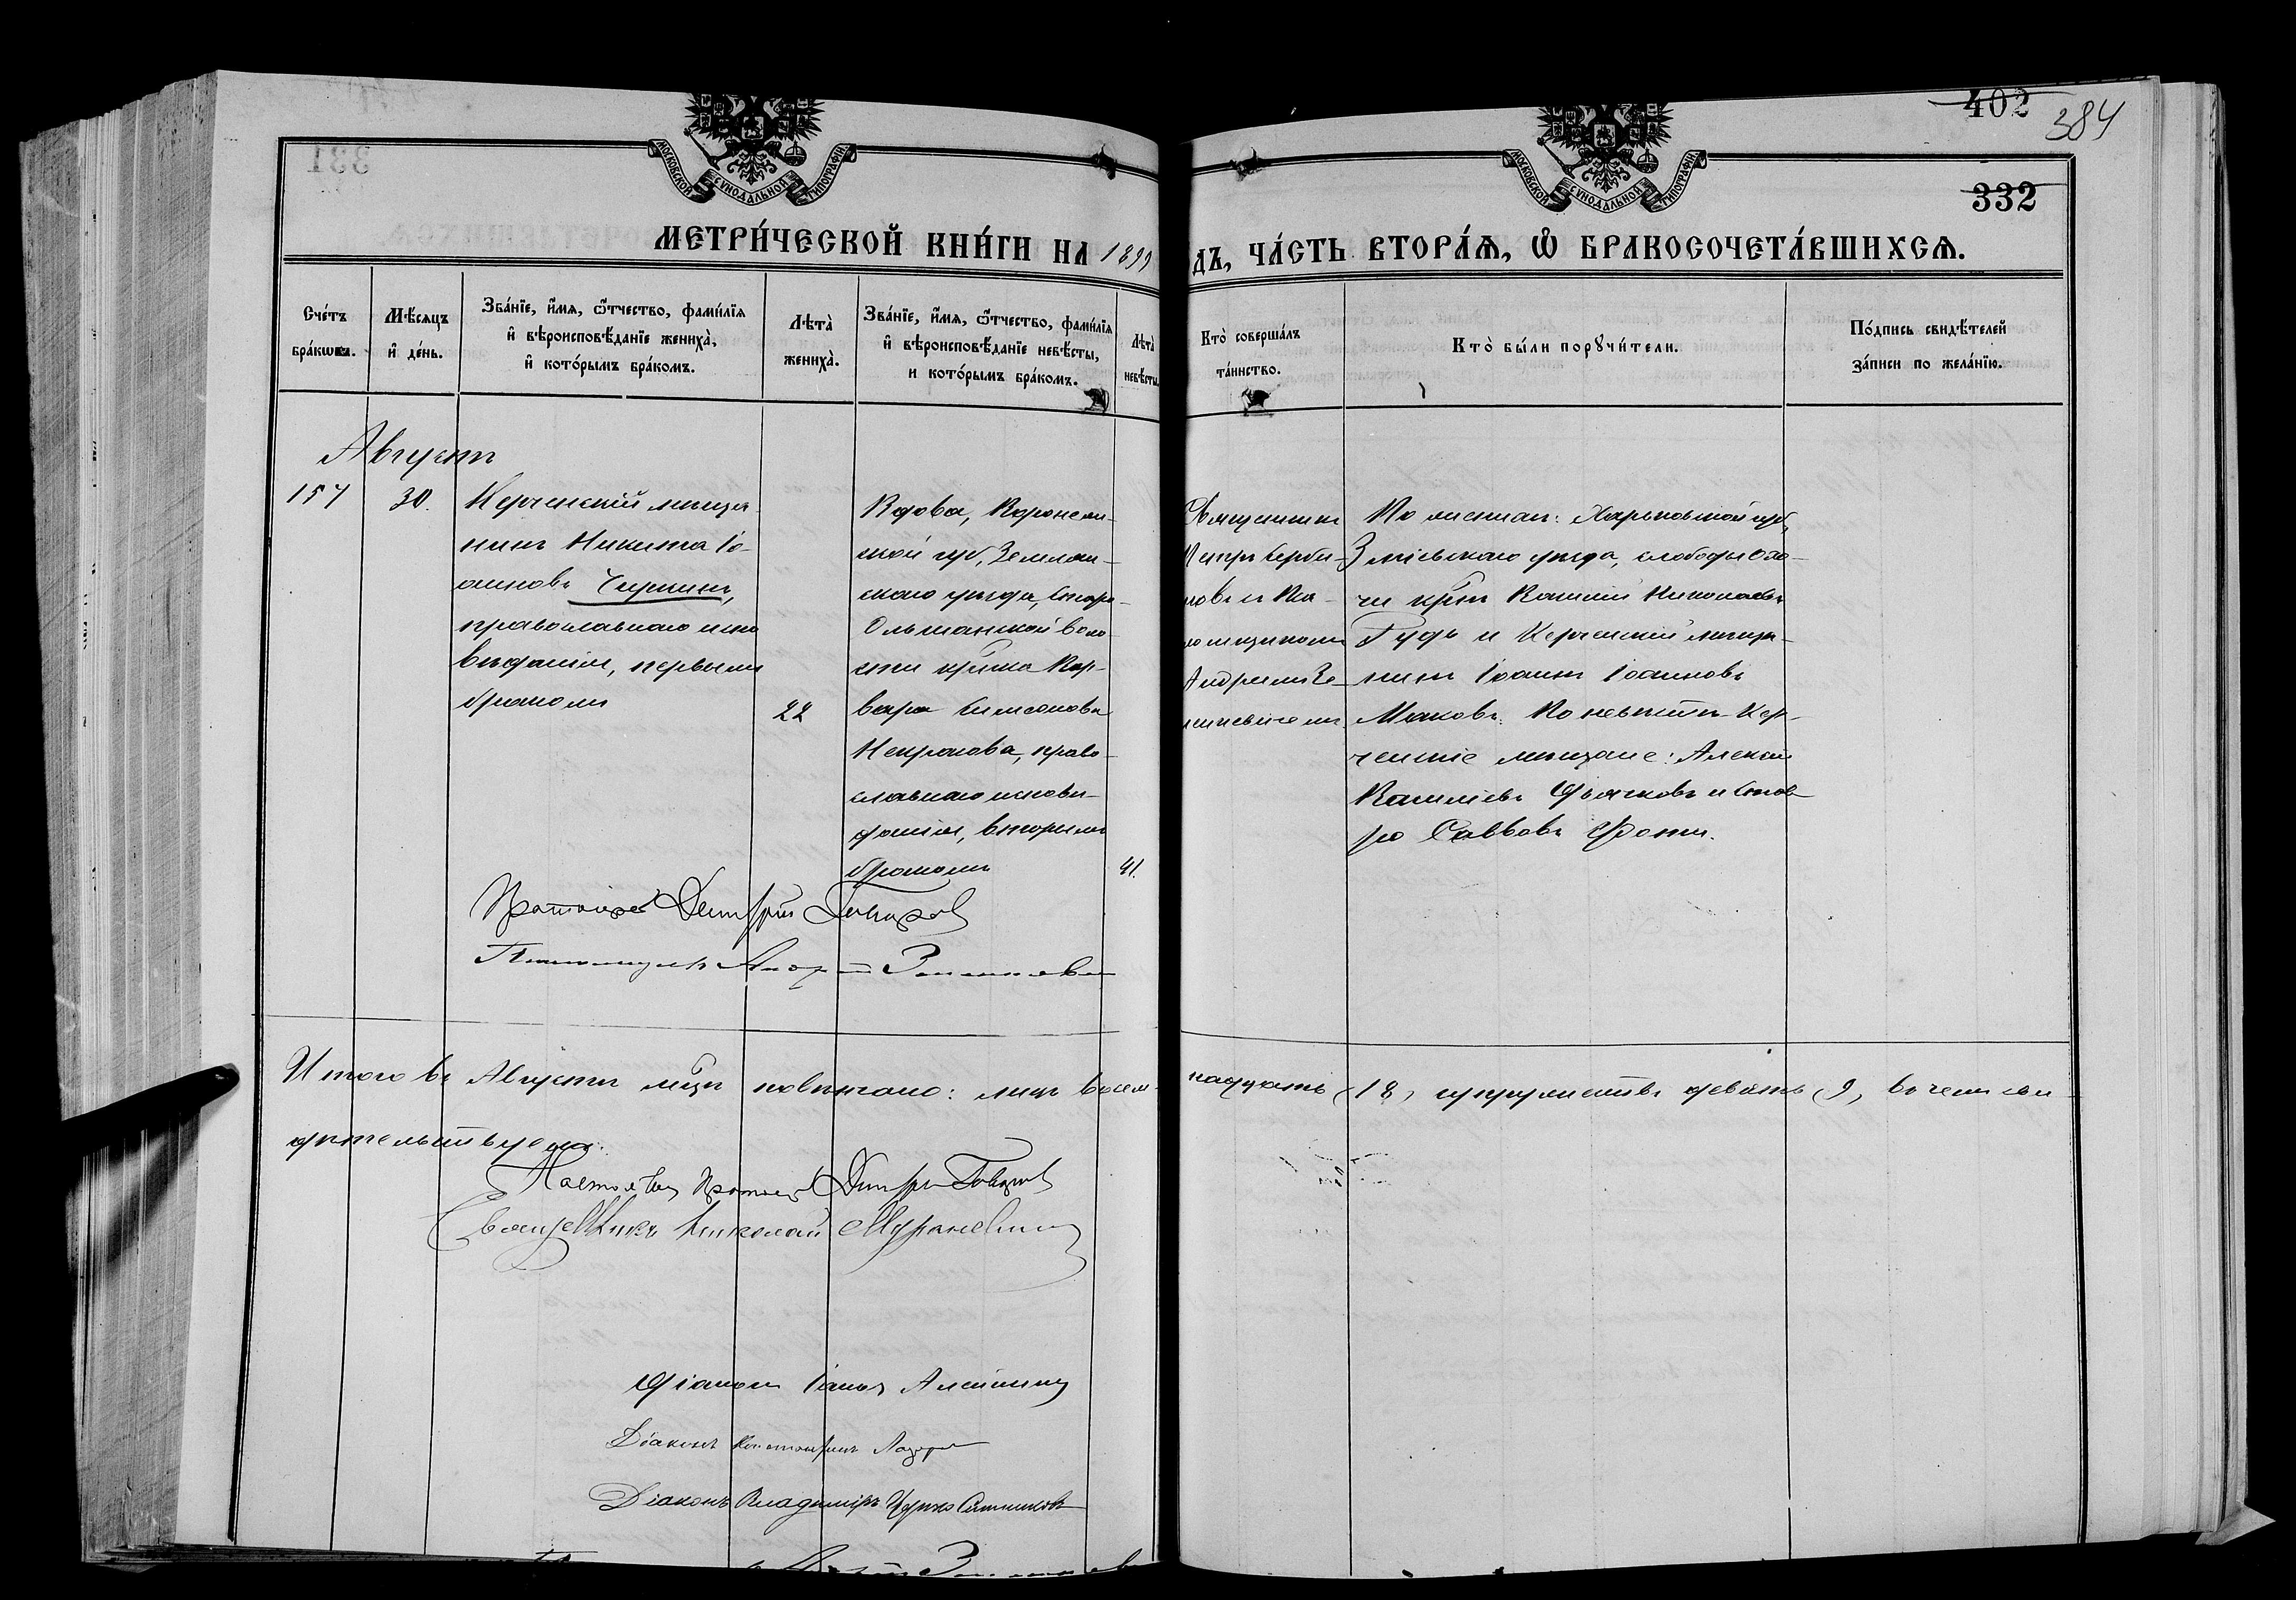 402
384
332
331
МОСКОВСКОЙ СУНОДАЛЬНОЙ ТИПОГРАФІИ
МОСКОВСКОЙ СУНОДАЛЬНОЙ ТИПОГРАФІИ
МЕТРИ́ЧЕСКОЙ КНИ́ГИ НА 1899
ДЪ, ЧА́СТЬ ВТОРА́Ѧ, Ѡ БРАКОСОЧЕТА́ВШИХСѦ.
Сче́тъ бра́кѡвъ.
Мѣ́сяцъ и де́нь.
Зва́нїе, и́мя, ѻ҆́тчество, фами́лїя
и вѣроисповѣ́данїе жениха̀,
и кото́рымъ бра́комъ.
Лѣта̀ жениха̀.
Зва́нїе, и́мя, ѻ҆́тчество, фами́лїя
и вѣроисповѣ́данїе невѣ́сты,
и кото́рымъ бра́комъ.
Лѣта̀ невѣ́сты.
Кто̀ соверша́лъ
та́инство.
Кто̀ бы́ли порꙋчи́тели.
По́дпись свидѣ́телей
за́писи по жела́нїю.
Августъ
157
30.
Керченскій мѣща-
нинъ Никита Іо-
анновъ
православнаго испо
вѣданія, первымъ
бракомъ
22
Вдова, Воронеж-
ской губ, Землян-
скаго уѣзда, Старо-
Ольшанской воло-
сти кр͠нка Вар-
вара Симеонова
Некрасова, право-
славнаго исповѣ-
данія, вторымъ
бракомъ
41.
Священникъ
Петръ Серби-
новъ и
Андреемъ Зе-
По женихѣ: Харьковской губ,
Зміевскаго уѣзда, слободы Охо-
чи кр͠нъ Василій Николаевъ
Гудъ и Керченскій мѣща-
нинъ Іоаннъ Іоанновъ
По невѣстѣ Кер-
ченскіе мѣщане: Алексѣй
Василіевъ Дьячковъ и
Саввовъ
Протоіерей Димитрій
Псаломщикъ Андрей
Итого въ Августѣ м͠цѣ повѣнчано: лицъ восем-
надцать (18) супружествъ девять (9), въ чемъ сви-
дѣтельствуемъ:
Настоятель Протоіерей Димитрій
Священникъ Николай
Діаконъ
Діаконъ Константинъ
Діаконъ Владиміръ